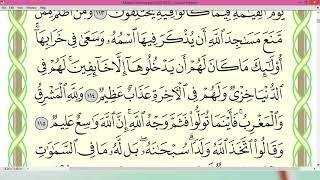 يَوْمَ ٱلْقِيَـٰمَةِ فِيمَا كَانُوا۟ فِيهِ يَخْتَلِفُونَ ١١٣ وَمَنْ أَظْلَمُ مِمَّن
مَّنَعَ مَسَـٰجِدَ ٱللَّهِ أَن يُذْكَرَ فِيهَا ٱسْمُهُۥ وَسَعَىٰ فِى خَرَابِهَآ
أُو۟لَـٰٓئِكَ مَا كَانَ لَهُمْ أَن يَدْخُلُوهَآ إِلَّا خَآئِفِينَ لَهُمْ فِى
ٱلدُّنْيَا خِزْىٌ وَلَهُمْ فِى ٱلْـَٔاخِرَةِ عَذَابٌ عَظِيمٌ ١١٤ وَلِلَّهِ ٱلْمَشْرِقُ
وَٱلْمَغْرِبُ فَأَيْنَمَا تُوَلُّوا۟ فَثَمَّ وَجْهُ ٱللَّهِ إِنَّ ٱللَّهَ وَٰسِعٌ عَلِيمٌ ١١٥
وَقَالُوا۟ ٱتَّخَذَ ٱللَّهُ وَلَدًا سُبْحَـٰنَهُۥ بَل لَّهُۥ مَا فِى ٱلسَّمَـٰوَٰتِ